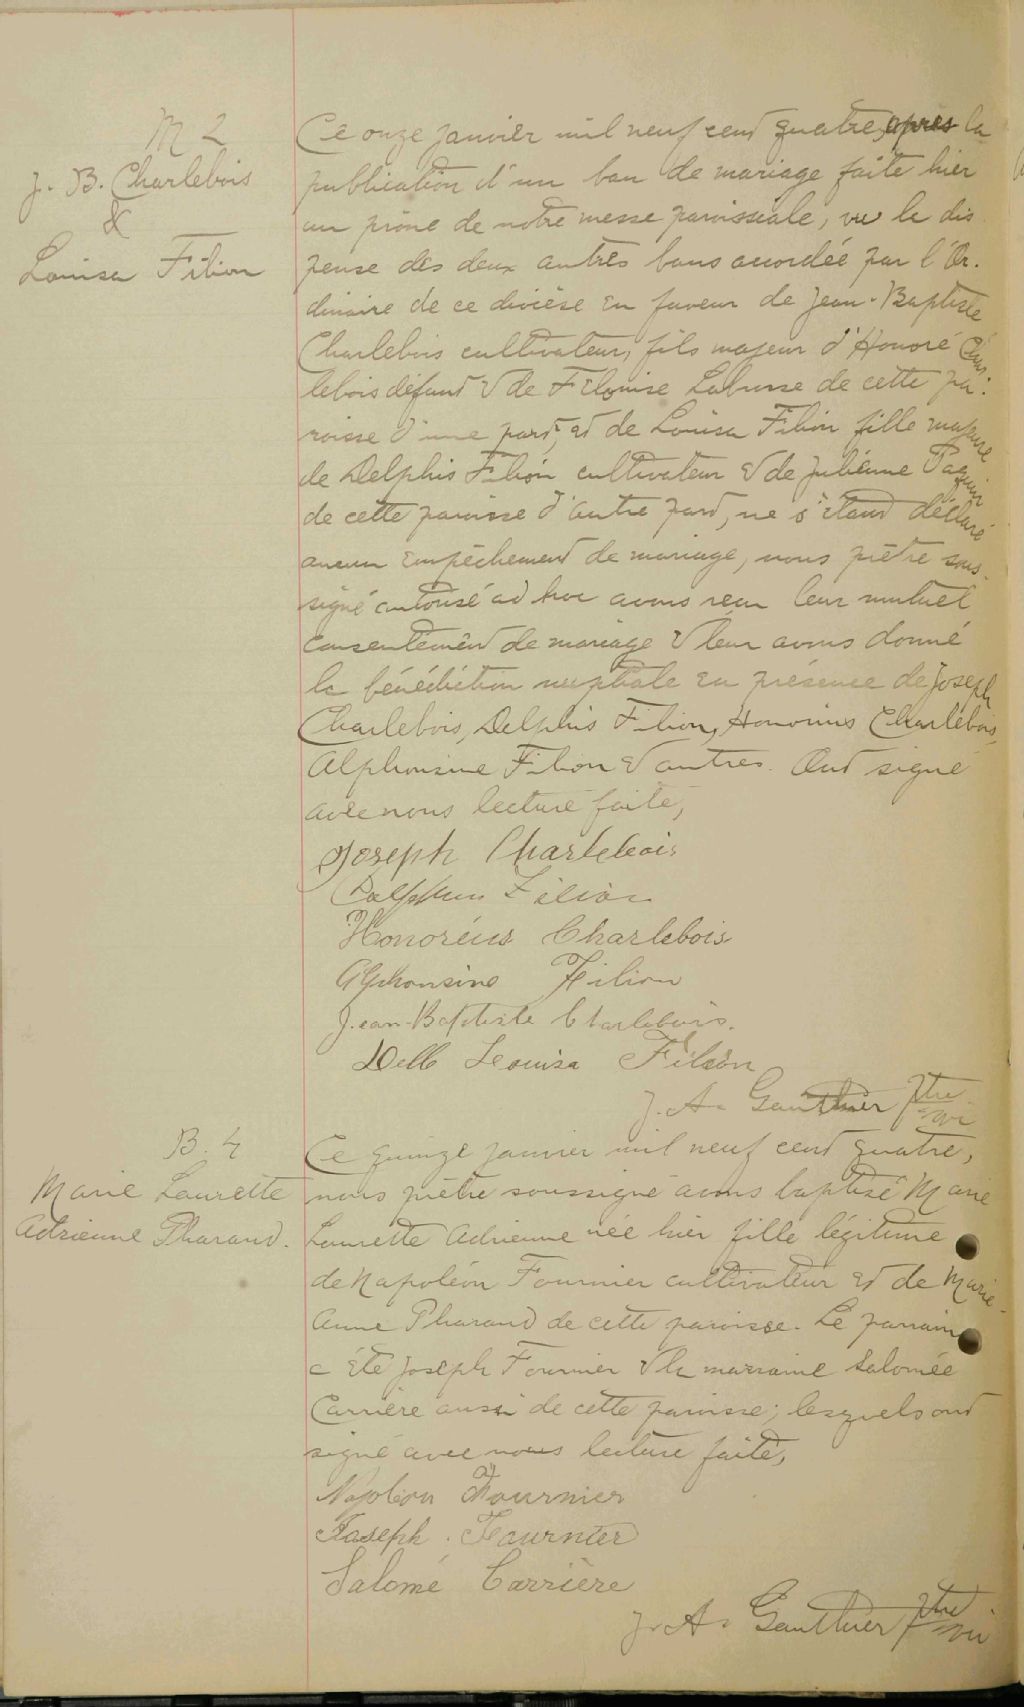 M 2
J. B. Charlebois
&
Louisa Filion
Ce onze janvier mil neuf cent quatre, après la
publication d'un ban de mariage faite hier
au prône de notre messe paroissiale, vu le dis
pense des deux autres bans accordée par l'Or-
dinaire de ce diocèse en faveur de Jean-Baptiste
Charlebois cultivateur, fils majeur d'Honoré Char-
lebois défunt & de Eloise de cette pa-
roisse d'une part, et de Louisa Filion fille majeure
de Delphis Filion cultivateur & de Julienne Paquin
de cette paroisse d'autre part, ne s'étant déclaré
aucun empêchement de mariage, nous prêtre sous-
signé autorisé ad hoc avons reçu leur mutuel
consentement de mariage & leur avons donné
la bénédiction nuptiale en présence de Joseph
Charlebois, Delphis Filion, Honorius Charlebois,
Alphonsine Filion & autres. Ont signé
avec nous lecture faite,
Joseph Charlebois
Delphis Filion
Honoréus Charlebois
Alphonsine Filion
Jean-Baptiste Charlebois.
Delle Louisa Filion
J. A. Gauthier Ptre
vic
B. 4
Marie Laurette
Adrienne Pharand.
Ce quinze janvier mil neuf cent quatre,
nous prêtre soussigné avons baptisé Marie
Laurette Adrienne née hier fille légitime
de Napoléon Fournier cultivateur et de Marie-
Anne Pharand de cette paroisse. Le parrain
a été Joseph Fournier & la marraine Salomée
Carrière aussi de cette paroisse; lesquels ont
signé avec nous lecture faite,
Napoléon Fournier
Joseph Fournier
Salomé Carrière
J. A. Gauthier Ptre
vic